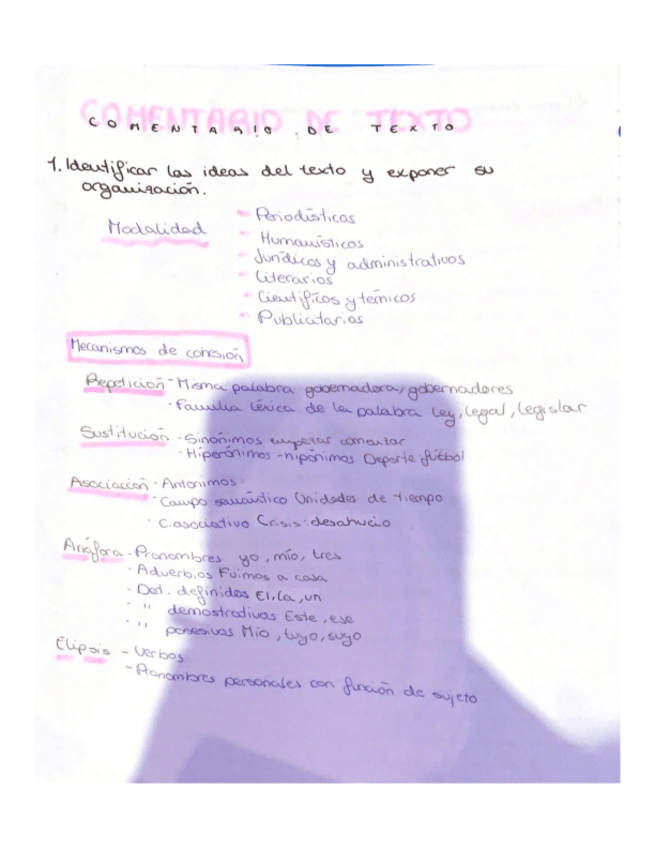 COMENTARIO DE TEXTO
COMENTARIO DE TEXTO
1. Identificar las ideas del texto y exponer su
organización.
Modalidad
- Periodísticos
- Humanísticos
- Jurídicos y administrativos
- Literarios
- Científicos y técnicos
- Publicitarios
Mecanismos de cohesión
Repetición - Misma palabra gobernadora, gobernadores
· Familia léxica de la palabra Ley, legal, legislar
Sustitución · Sinónimos empezar comenzar
· Hiperónimos - nipónimos Deporte fútbol
Asociación · Antonimos
· Campo semántico Unidades de tiempo
· C. asociativo Crisis: desahucio
Anáfora · Pronombres yo, mío, tres
· Adverbios Fuimos a casa
- Det. definidos El, la, un
· " demostrativos Este, ese
· " posesivos Mío, tuyo, suyo
Elipsis - Verbos
- Pronombres personales con función de sujeto